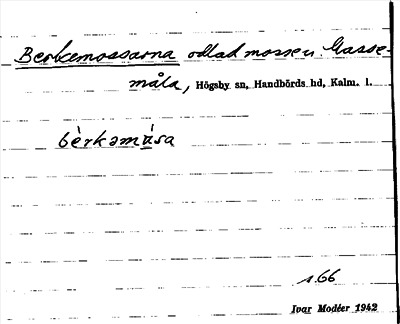 Berkemossarna odlad mosse i Gasse-
måla, Högsby sn, Handbörds hd, Kalm. l.
bèrkamåsa
s. 66
Ivar Modéer 1942